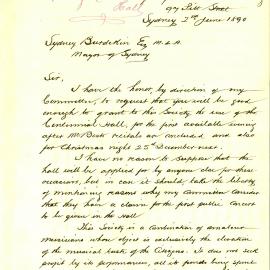 Hall
97 Pitt Street
Sydney 2nd June 1890
Sydney Burdekin Esq M.L.A.
Mayor of Sydney
Sir,
I have the honor, by direction of my
Committee, to request that you will be good
enough to grant to this Society the use of the
Centennial Hall, for the first available evening
after Mr Best's recitals are concluded and also
for Christmas night 25th December next.
I have no reason to suppose that the
hall will be applied for by anyone else for these
occasions, but in case it should take the liberty
of mentioning reasons why my Committee consider
that they have a claim for the first public concert
to be given in the Hall
This Society is a combination of amateur
musicians whose object is exclusively the elevation
of the musical taste of the Citizens. It does not seek
profit by its performances, all its funds being spent